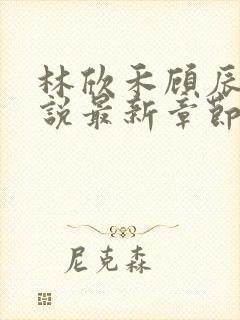 林欣禾顾辰
说最新章节
尼克森